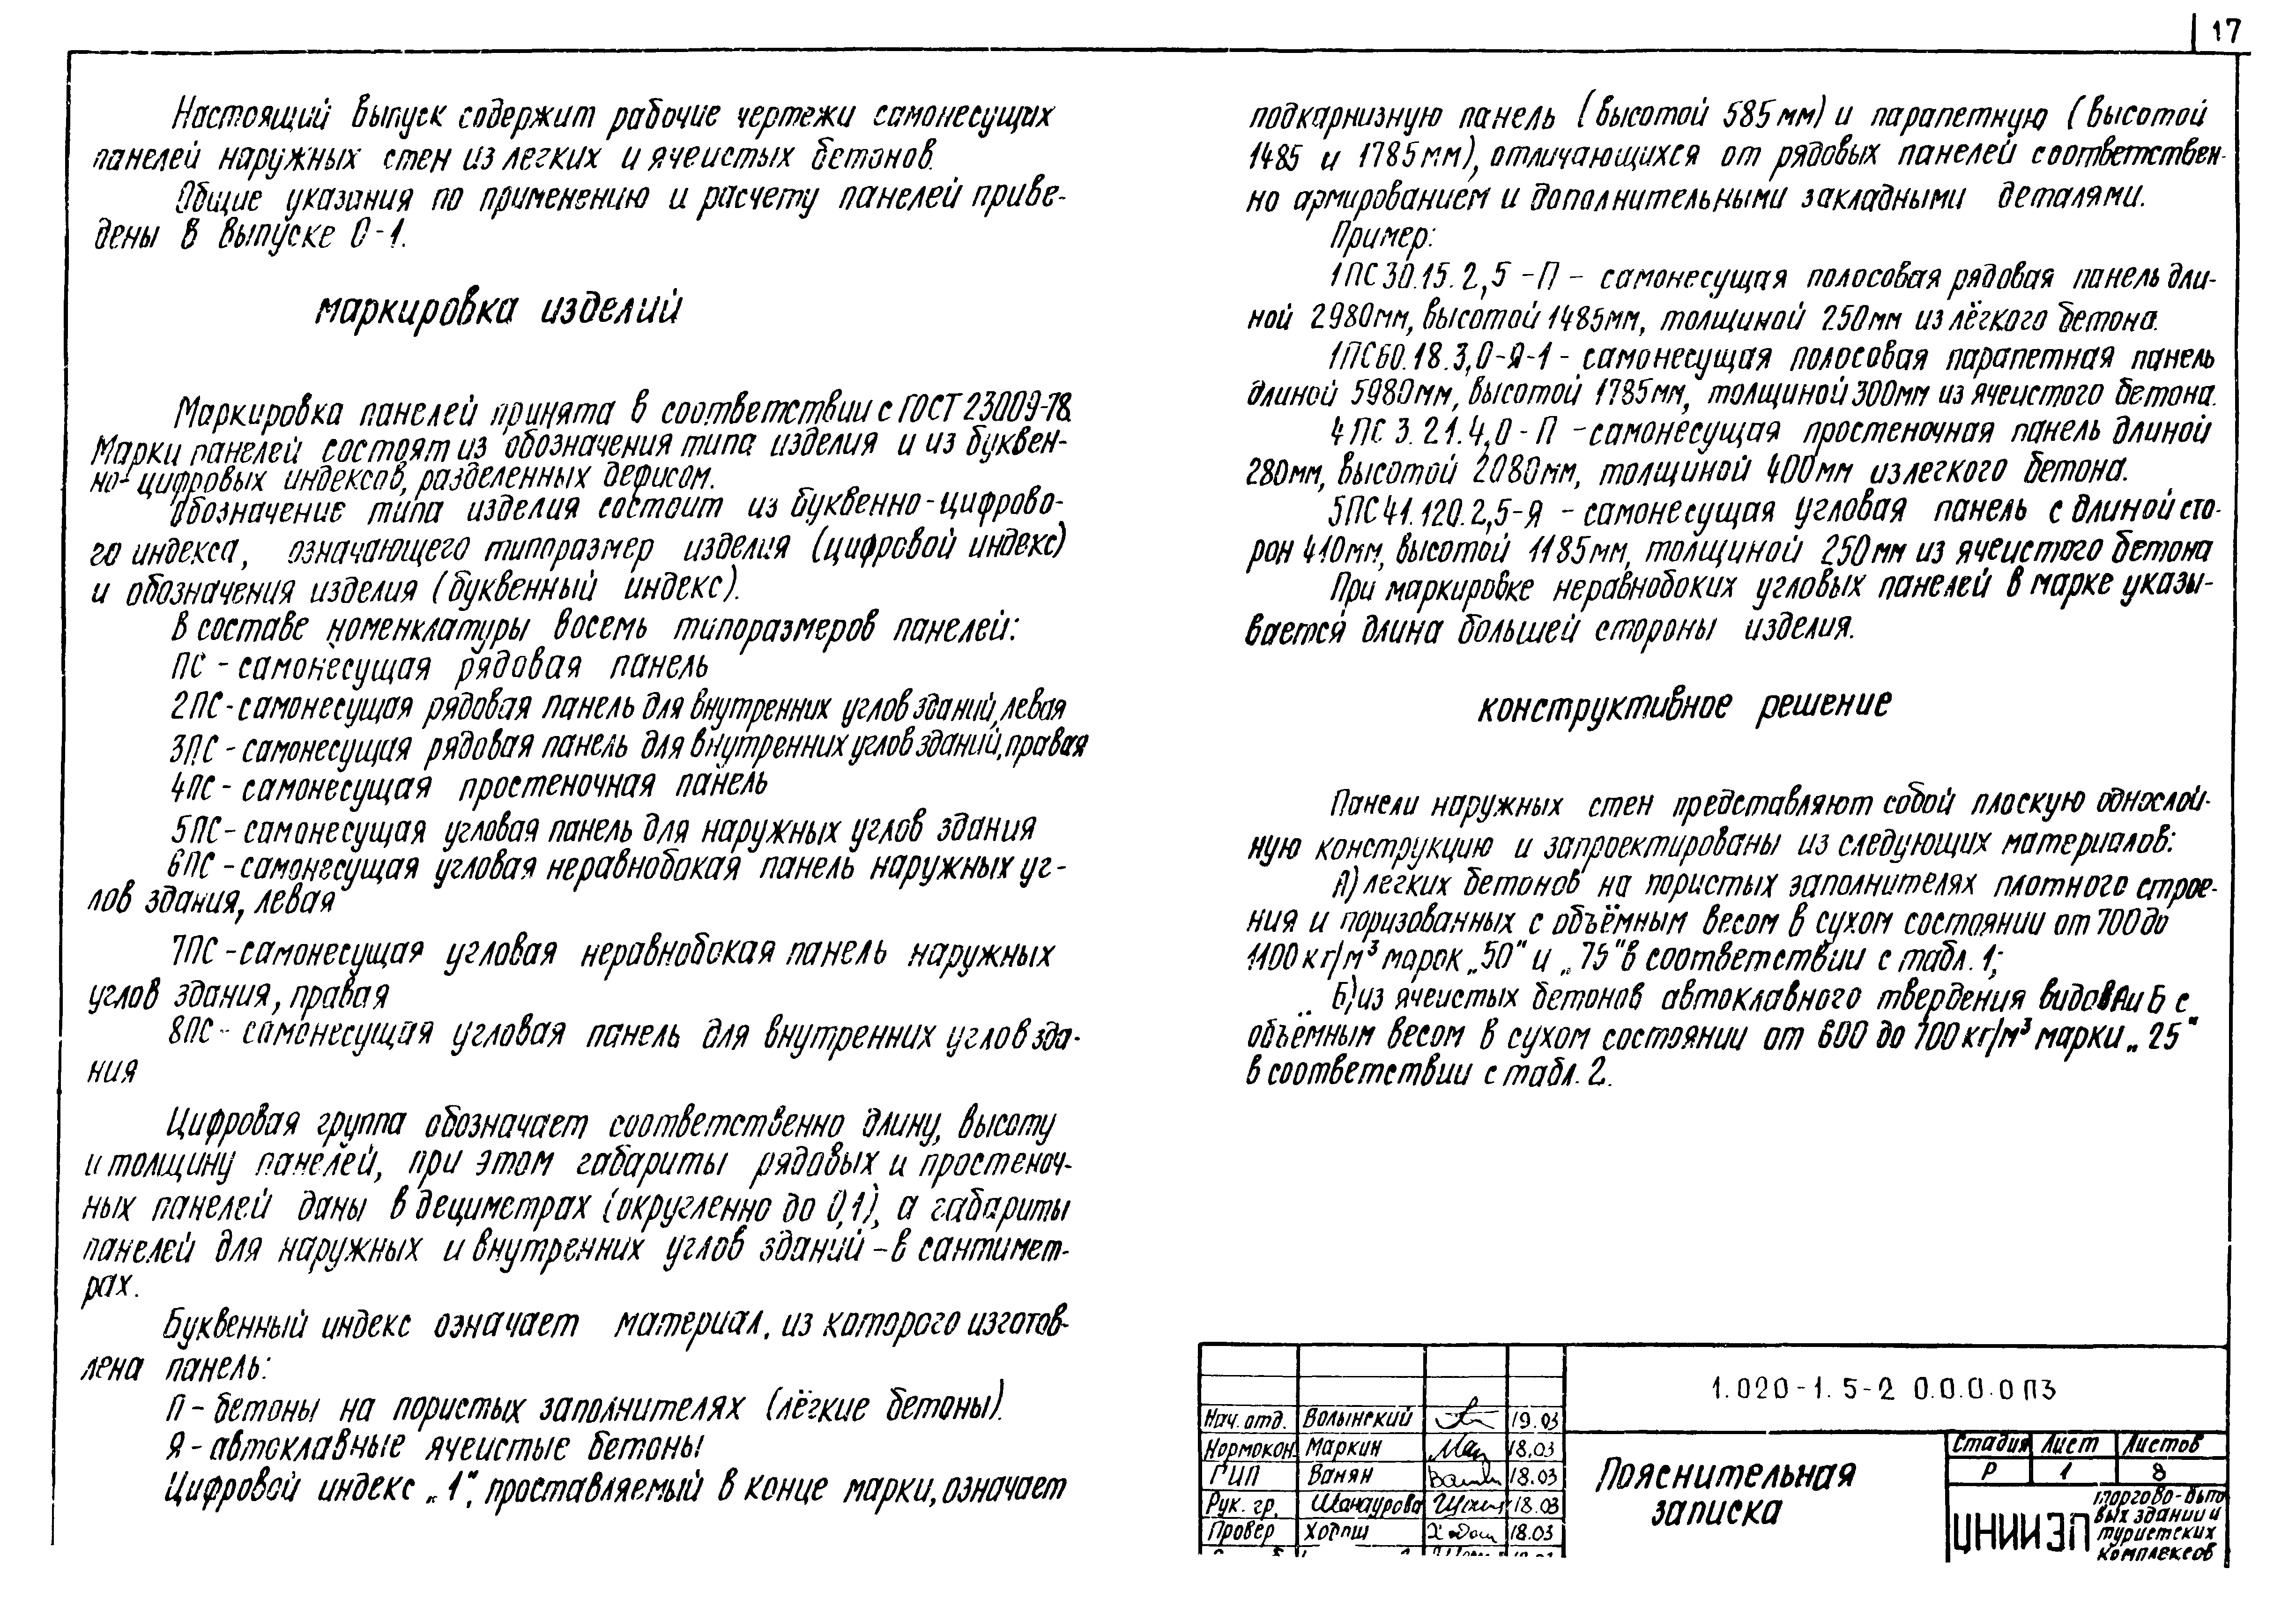 17
Настоящий выпуск содержит рабочие чертежи самонесущих
панелей наружных стен из легких и ячеистых бетонов.
Общие указания по применению и расчету панелей приве-
дены в выпуске 0-1.
маркировка изделий
Маркировка панелей принята в соответствии с ГОСТ 23009-78.
Марки панелей состоят из обозначения типа изделия и из буквен-
но-цифровых индексов, разделенных дефисом.
Обозначение типа изделия состоит из буквенно-цифрово-
го индекса, означающего типоразмер изделия (цифровой индекс)
и обозначения изделия (буквенный индекс).
В составе номенклатуры восемь типоразмеров панелей:
ПС - самонесущая рядовая панель
2ПС - самонесущая рядовая панель для внутренних углов зданий, левая
3ПС - самонесущая рядовая панель для внутренних углов зданий, правая
4ПС - самонесущая простеночная панель
5ПС - самонесущая угловая панель для наружных углов здания
6ПС - самонесущая угловая неравнобокая панель наружных уг-
лов здания, левая
7ПС - самонесущая угловая неравнобокая панель наружных
углов здания, правая
8ПС - самонесущая угловая панель для внутренних углов зда-
ния
Цифровая группа обозначает соответственно длину, высоту
и толщину панелей, при этом габариты рядовых и простеноч-
ных панелей даны в дециметрах (округленно до 0,1), а габариты
панелей для наружных и внутренних углов зданий - в сантимет-
рах.
Буквенный индекс означает материал, из которого изготов-
лена панель:
П - бетоны на пористых заполнителях (лёгкие бетоны).
Я - автоклавные ячеистые бетоны
Цифровой индекс „1", проставляемый в конце марки, означает
подкарнизную панель (высотой 585 мм) и парапетную (высотой
1485 и 1785 мм), отличающихся от рядовых панелей соответствен-
но армированием и дополнительными закладными деталями.
Пример:
1ПС 30.15.2,5 - П - самонесущая полосовая рядовая панель дли-
ной 2980мм, высотой 1485мм, толщиной 250мм из лёгкого бетона.
1ПС60.18.3,0-Я-1 - самонесущая полосовая парапетная панель
длиной 5980мм, высотой 1785мм, толщиной 300мм из ячеистого бетона.
4 ПС 3.21.4,0 - П - самонесущая простеночная панель длиной
280мм, высотой 2080мм, толщиной 400мм из легкого бетона.
5ПС 41.120.2,5-Я - самонесущая угловая панель с длиной сто-
рон 410мм, высотой 1185мм, толщиной 250мм из ячеистого бетона
При маркировке неравнобоких угловых панелей в марке указы-
вается длина большей стороны изделия.
конструктивное решение
Панели наружных стен представляют собой плоскую однослой-
ную конструкцию и запроектированы из следующих материалов:
А) легких бетонов на пористых заполнителях плотного строе-
ния и поризованных с объёмным весом в сухом состоянии от 700 до
1100 кг/м³ марок „50" и „75" в соответствии с табл. 1;
Б) из ячеистых бетонов автоклавного твердения видов А и Б с
объёмным весом в сухом состоянии от 600 до 700 кг/м³ марки „25"
в соответствии с табл. 2.
1.020-1.5-2 0.0.0.0 ПЗ
Нач. отд. Волынский 19.03
Нормокон. Маркин 18.03
ГИП Ванян 18.03
Рук. гр. Шанаурова 18.03
Провер 18.03
Пояснительная
записка
Стадия Лист Листов
Р 1 8
ЦНИИЭП
торгово-быто
вых зданий и
туристских
комплексов